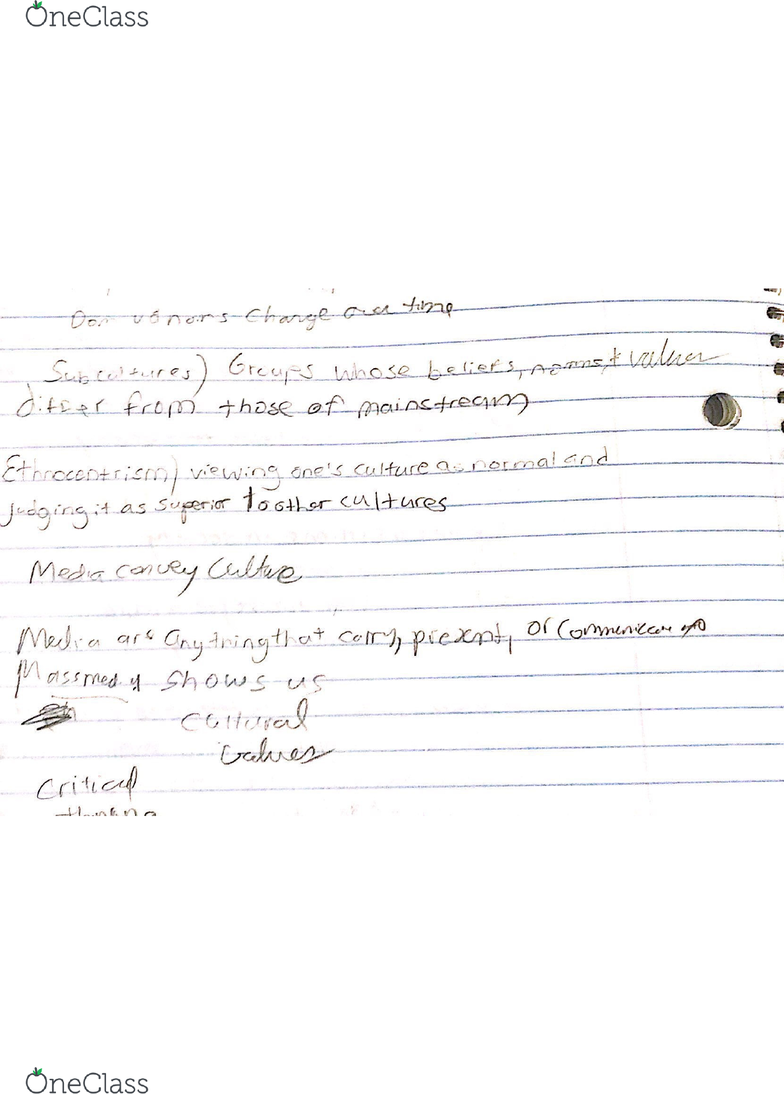 OneClass
change time
Subcultures) Groups whose beliefs, norms, + values
differ from those of mainstream
Ethnocentrism) viewing one's culture as normal and
judging it as superior to other cultures
Media convey Culture
Media are anything that carry, present, or
Massmedia shows us
cultural
values
Critical
thinking
OneClass